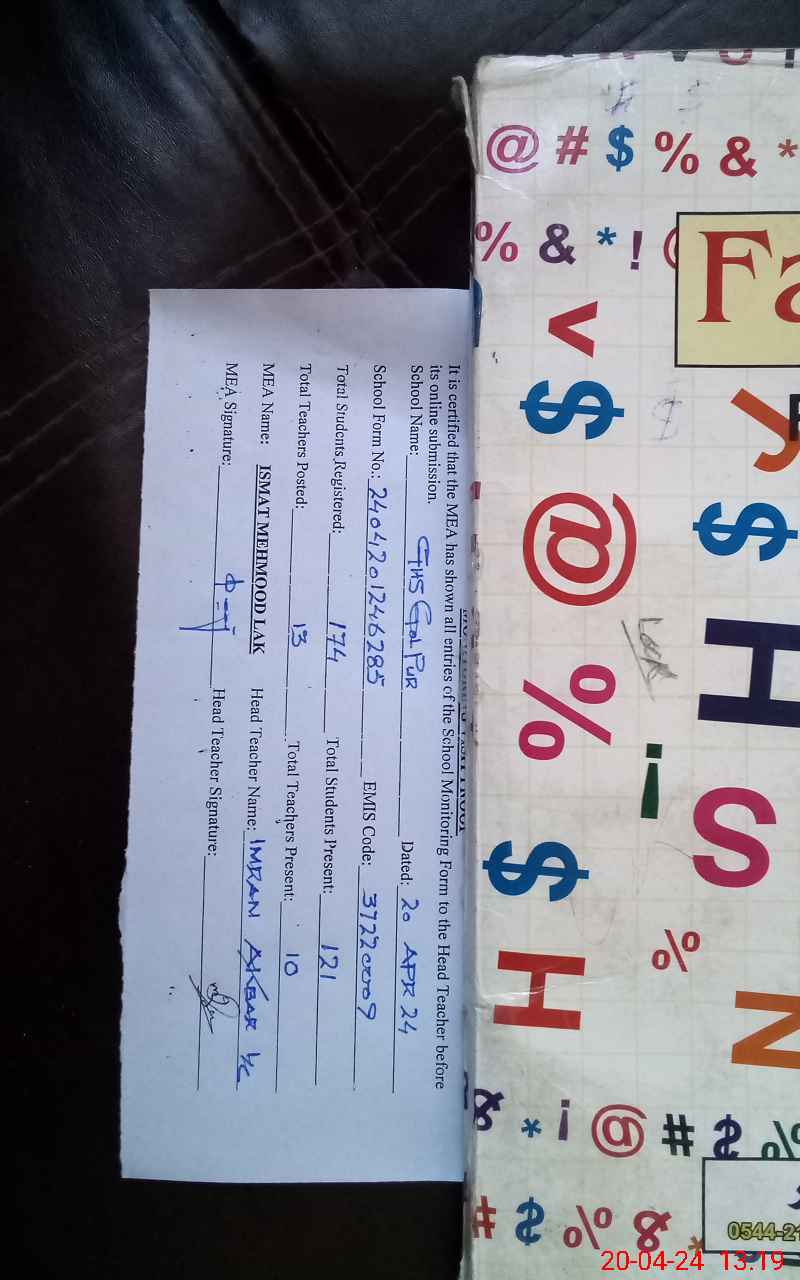 It is certified that the MEA has shown all entries of the School Monitoring Form to the Head Teacher before
its online submission.
School Name: GHS Gol Pur Dated: 20 APR 24
School Form No.: 2404201246285 EMIS Code: 37220009
Total Students Registered: 174 Total Students Present: 121
Total Teachers Posted: 13 Total Teachers Present: 10
MEA Name: ISMAT MEHMOOD LAK Head Teacher Name: IMRAN AKBAR I/C
MEA Signature: Head Teacher Signature:
@ # $ % & *
% & * !
Fa
V $ @ % $ H
$ H S N
Lock
!
%
& * ! @ # $ %
# $ % & *
0544-21
20-04-24 13.19